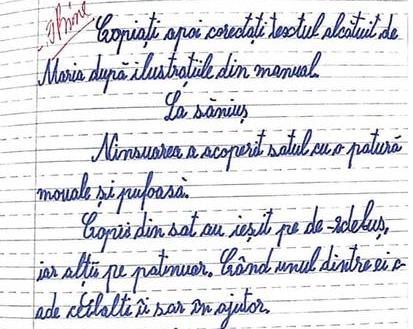 Copiați apoi corectați textul alcătuit de
Maria după ilustrațiile din manual.
La săniuș
Ninsuarea a acoperit satul cu o patură
mouale și pufoasă.
Copii din sat au ieșit pe de-rdeluș,
iar alții pe patinuar. Când unul dintre ei c-
ade ceilalti îi sar în ajutor.